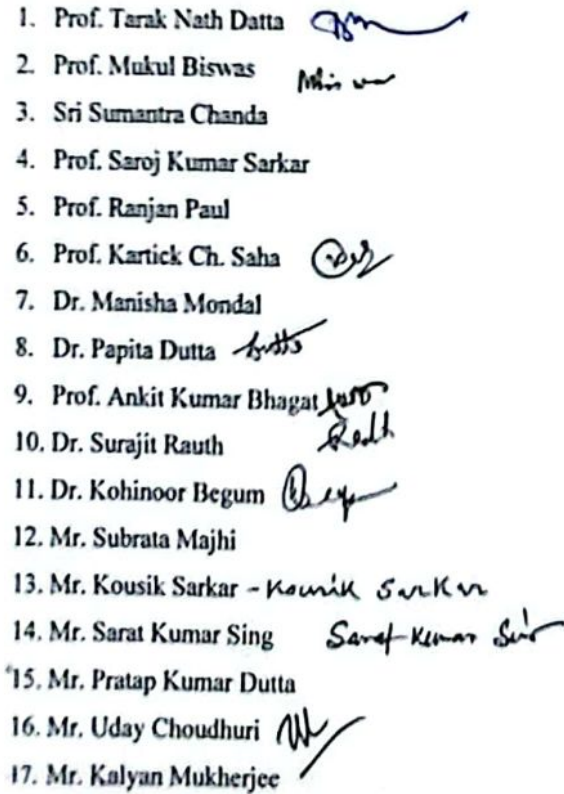 1. Prof. Tarak Nath Datta
2. Prof. Mukul Biswas
3. Sri Sumantra Chanda
4. Prof. Saroj Kumar Sarkar
5. Prof. Ranjan Paul
6. Prof. Kartick Ch. Saha
7. Dr. Manisha Mondal
8. Dr. Papita Dutta
9. Prof. Ankit Kumar Bhagat
10. Dr. Surajit Rauth
11. Dr. Kohinoor Begum
12. Mr. Subrata Majhi
13. Mr. Kousik Sarkar - Kousik Sarkar
14. Mr. Sarat Kumar Sing Sarat Kumar
15. Mr. Pratap Kumar Dutta
16. Mr. Uday Choudhuri
17. Mr. Kalyan Mukherjee